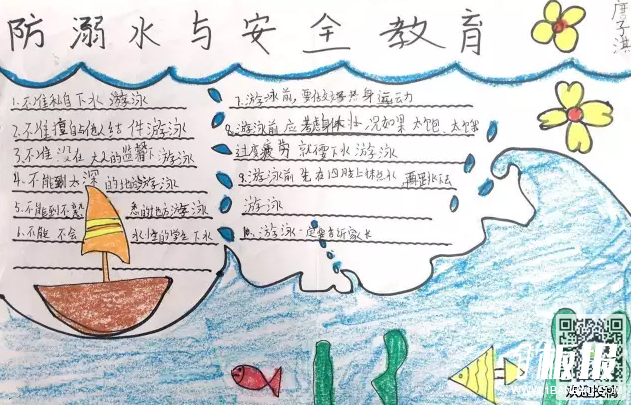 防溺水与安全教育
唐子淇
1.不准私自下水游泳
2.不准擅自与他人结伴游泳
3.不准没在大人的监督下游泳
4.不能到太深的地方游泳
5.不能到不熟悉的地方游泳
6.不能不会水性的学生下水
7.游泳前,要做好热身运动
8.游泳前应考虑身体状况如果太饱、太饿
过度疲劳就需下水游泳
9.游泳前先在四肢上
游泳
10.游泳一定要告诉家长
板报
欢迎投稿